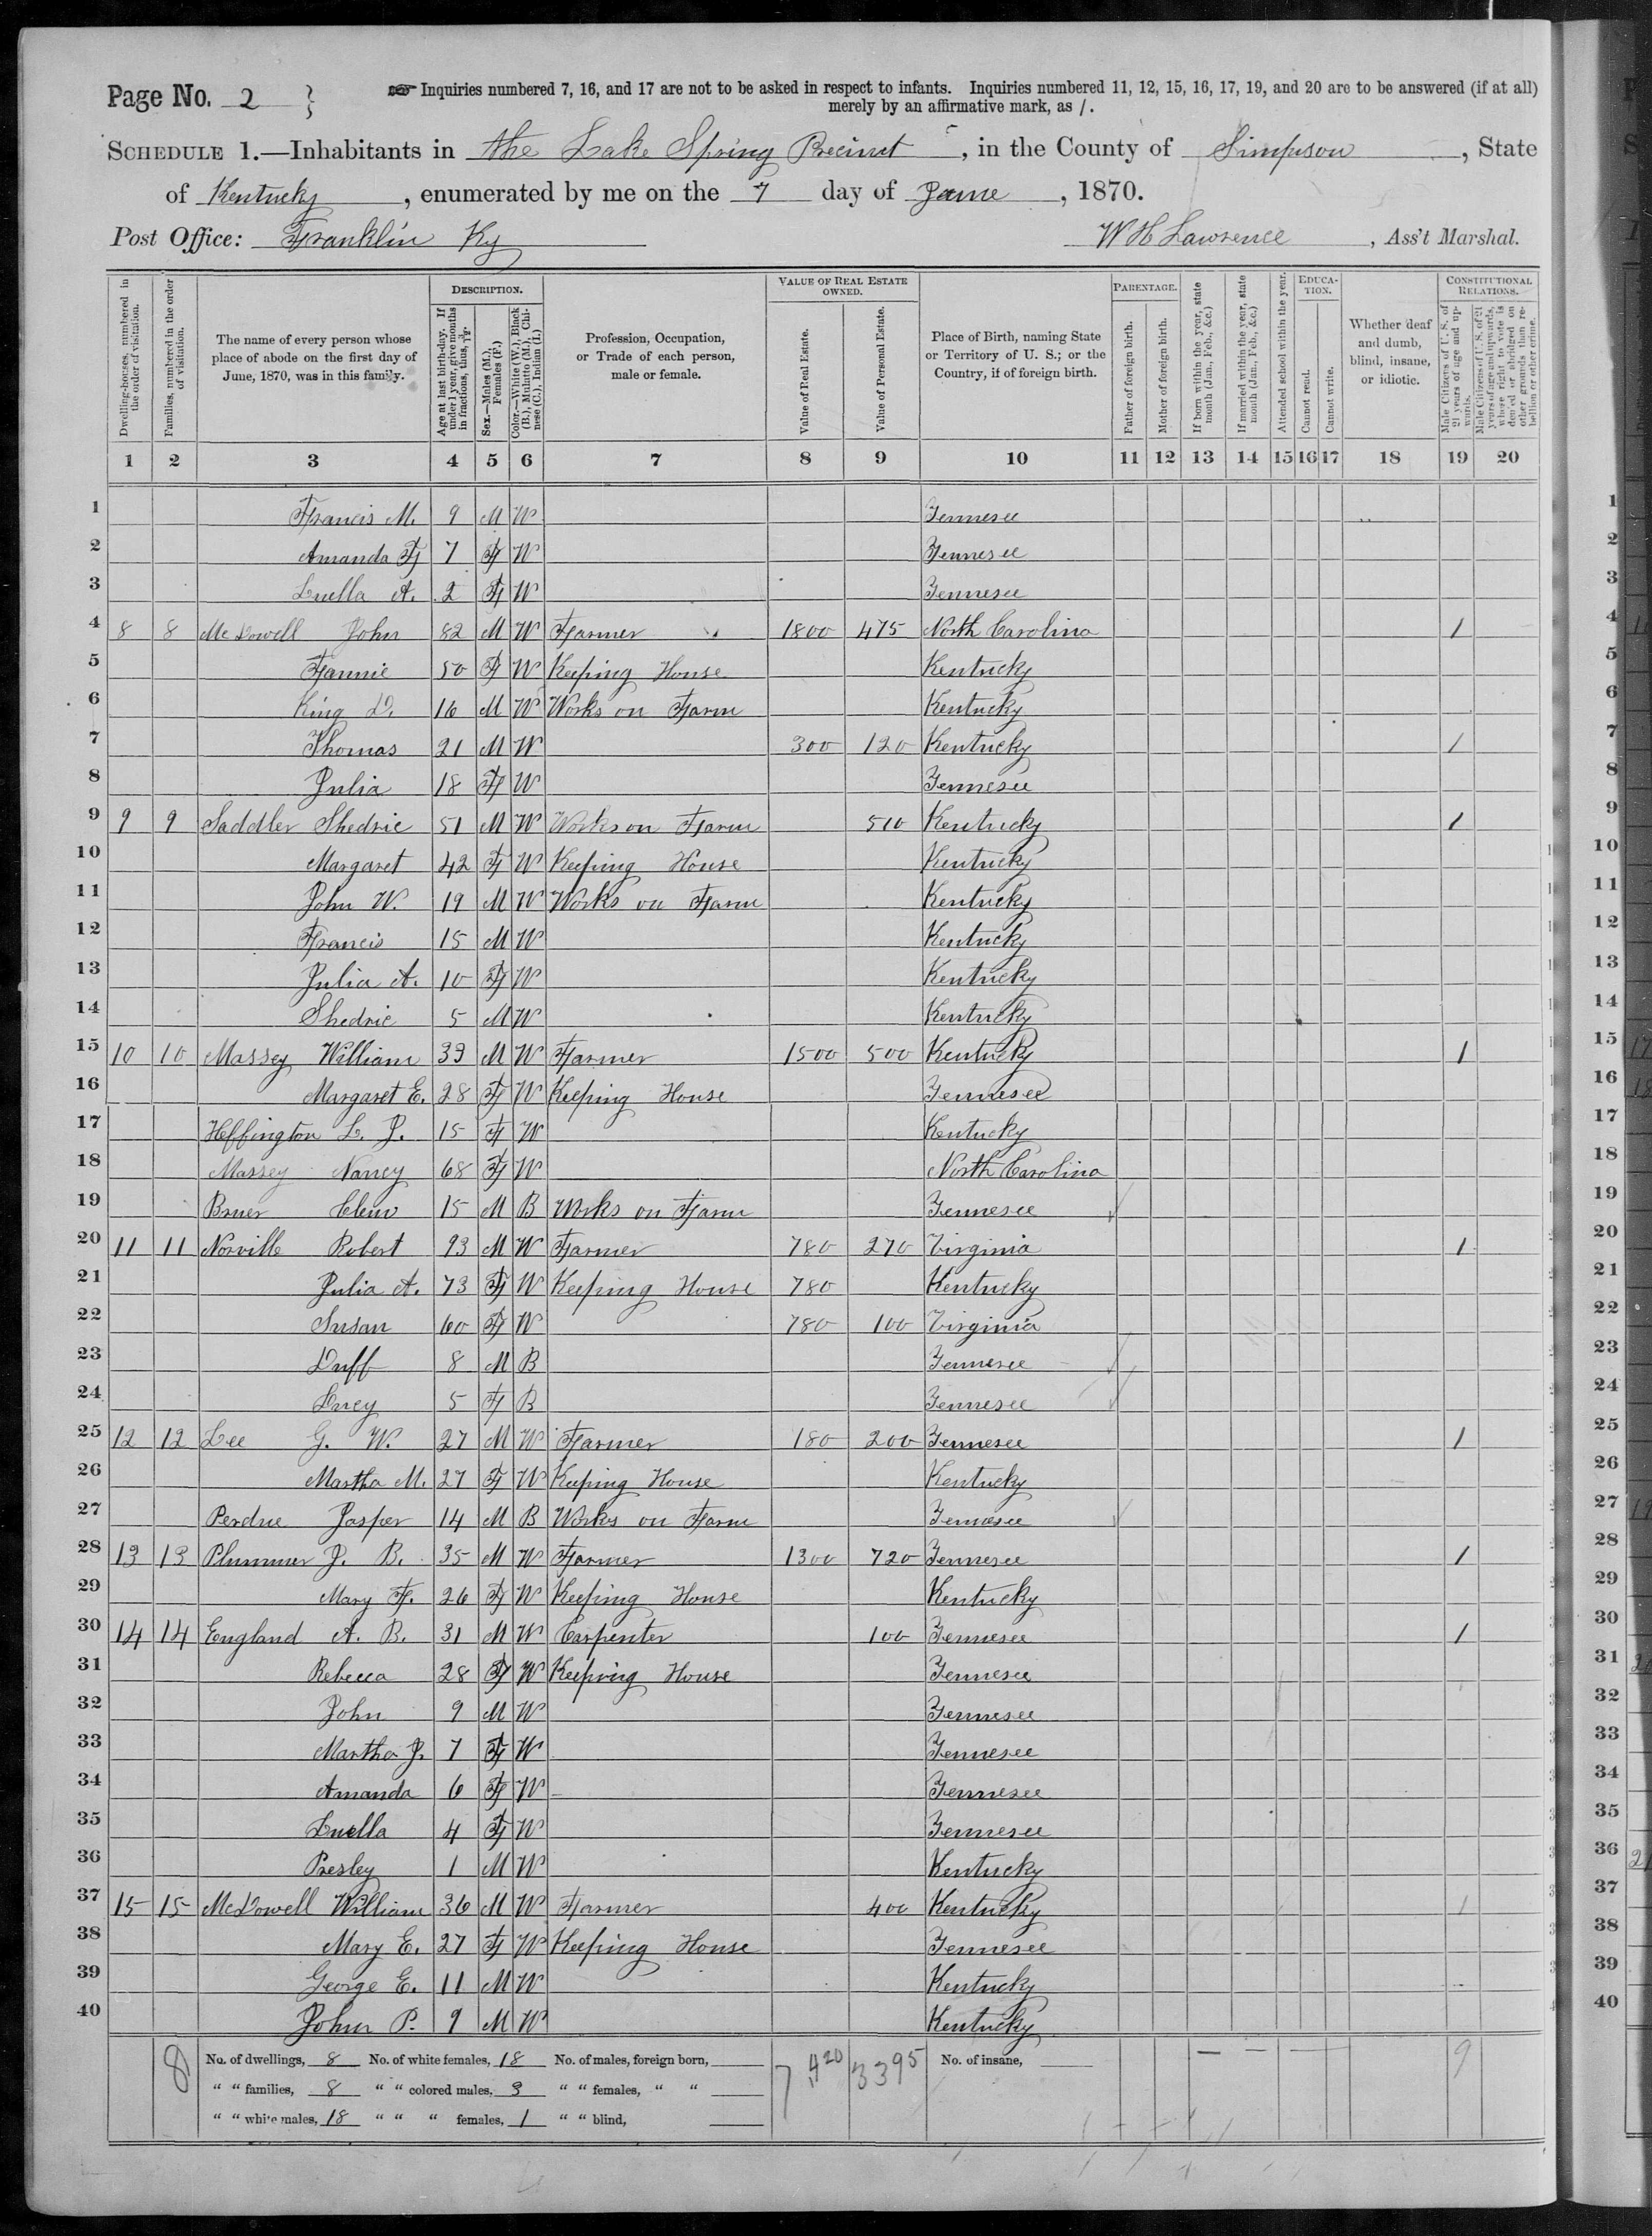 Page No. 2
Inquiries numbered 7, 16, and 17 are not to be asked in respect to infants. Inquiries numbered 11, 12, 15, 16, 17, 19, and 20 are to be answered (if at all)
merely by an affirmative mark, as /.
SCHEDULE 1.—Inhabitants in the Lake Spring Precinct, in the County of Simpson, State
of Kentucky, enumerated by me on the 7 day of June, 1870.
Post Office: Franklin Ky W H Lawrence, Ass't Marshal.
Dwelling-houses, numbered in the order of visitation.
Families, numbered in the order of visitation.
The name of every person whose place of abode on the first day of June, 1870, was in this family.
DESCRIPTION.
Age at last birth-day. If under 1 year, give months in fractions, thus, 3/12.
Sex.—Males (M.), Females (F.)
Color.—White (W.), Black (B.), Mulatto (M.), Chinese (C.), Indian (I.)
Profession, Occupation, or Trade of each person, male or female.
VALUE OF REAL ESTATE OWNED.
Value of Real Estate.
Value of Personal Estate.
Place of Birth, naming State or Territory of U. S.; or the Country, if of foreign birth.
PARENTAGE.
Father of foreign birth.
Mother of foreign birth.
If born within the year, state month (Jan., Feb., &c.)
If married within the year, state month (Jan., Feb., &c.)
EDUCATION.
Attended school within the year.
Cannot read.
Cannot write.
Whether deaf and dumb, blind, insane, or idiotic.
CONSTITUTIONAL RELATIONS.
Male Citizens of U. S. of 21 years of age and upwards.
Male Citizens of U. S. of 21 years of age and upwards, whose right to vote is denied or abridged on other grounds than rebellion or other crime.
1 2 3 4 5 6 7 8 9 10 11 12 13 14 15 16 17 18 19 20
1 Francis M. 9 M W Tennesee
2 Amanda F 7 F W Tennesee
3 Luella A. 2 F W Tennesee
4 8 8 McDowell John 82 M W Farmer 1800 475 North Carolina 1
5 Fannie 50 F W Keeping House Kentucky
6 King D. 16 M W Works on Farm Kentucky
7 Thomas 21 M W 300 120 Kentucky 1
8 Julia 18 F W Tennesee
9 9 9 Saddler Shedric 51 M W Works on Farm 510 Kentucky 1
10 Margaret 42 F W Keeping House Kentucky
11 John W. 19 M W Works on Farm Kentucky
12 Francis 15 M W Kentucky
13 Julia A. 10 F W Kentucky
14 Shedric 5 M W Kentucky
15 10 10 Massey William 33 M W Farmer 1500 500 Kentucky 1
16 Margaret E. 28 F W Keeping House Tennesee
17 Heffington L. J. 15 F W Kentucky
18 Massey Nancy 68 F W North Carolina
19 Bruer Clem 15 M B Works on Farm Tennesee
20 11 11 Norville Robert 93 M W Farmer 780 270 Virginia 1
21 Julia A. 73 F W Keeping House 780 Kentucky
22 Susan 60 F W 780 100 Virginia
23 Duff 8 M B Tennesee
24 Lucy 5 F B Tennesee
25 12 12 Lee G. W. 27 M W Farmer 180 200 Tennesee 1
26 Martha M. 27 F W Keeping House Kentucky
27 Perdue Jasper 14 M B Works on Farm Tennesee
28 13 13 Plummer J. B. 35 M W Farmer 1300 720 Tennesee 1
29 Mary F. 26 F W Keeping House Kentucky
30 14 14 England A. B. 31 M W Carpenter 100 Tennesee 1
31 Rebecca 28 F W Keeping House Tennesee
32 John 9 M W Tennesee
33 Martha J. 7 F W Tennesee
34 Amanda 6 F W Tennesee
35 Luella 4 F W Tennesee
36 Presley 1 M W Kentucky
37 15 15 McDowell William 36 M W Farmer 400 Kentucky 1
38 Mary E. 27 F W Keeping House Tennesee
39 George E. 11 M W Kentucky
40 John P. 9 M W Kentucky
8 No. of dwellings, 8 No. of white females, 18 No. of males, foreign born, 7,420 3395 No. of insane, 9
" " families, 8 " " colored males, 3 " " females, " "
" " white males, 18 " " " females, 1 " " blind,